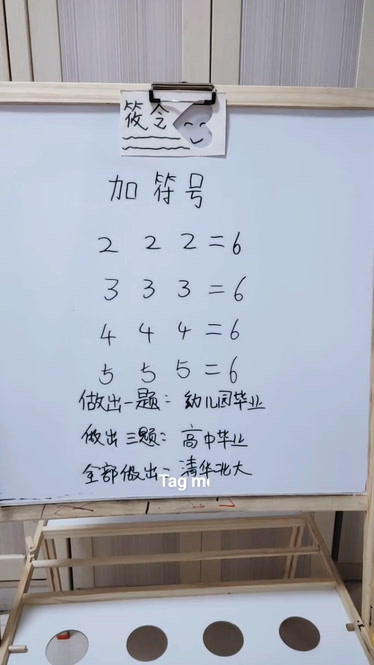 筱令
加符号
2 2 2=6
3 3 3=6
4 4 4=6
5 5 5=6
做出一题：幼儿园毕业
做出三题：高中毕业
全部做出：清华北大
Tag mi